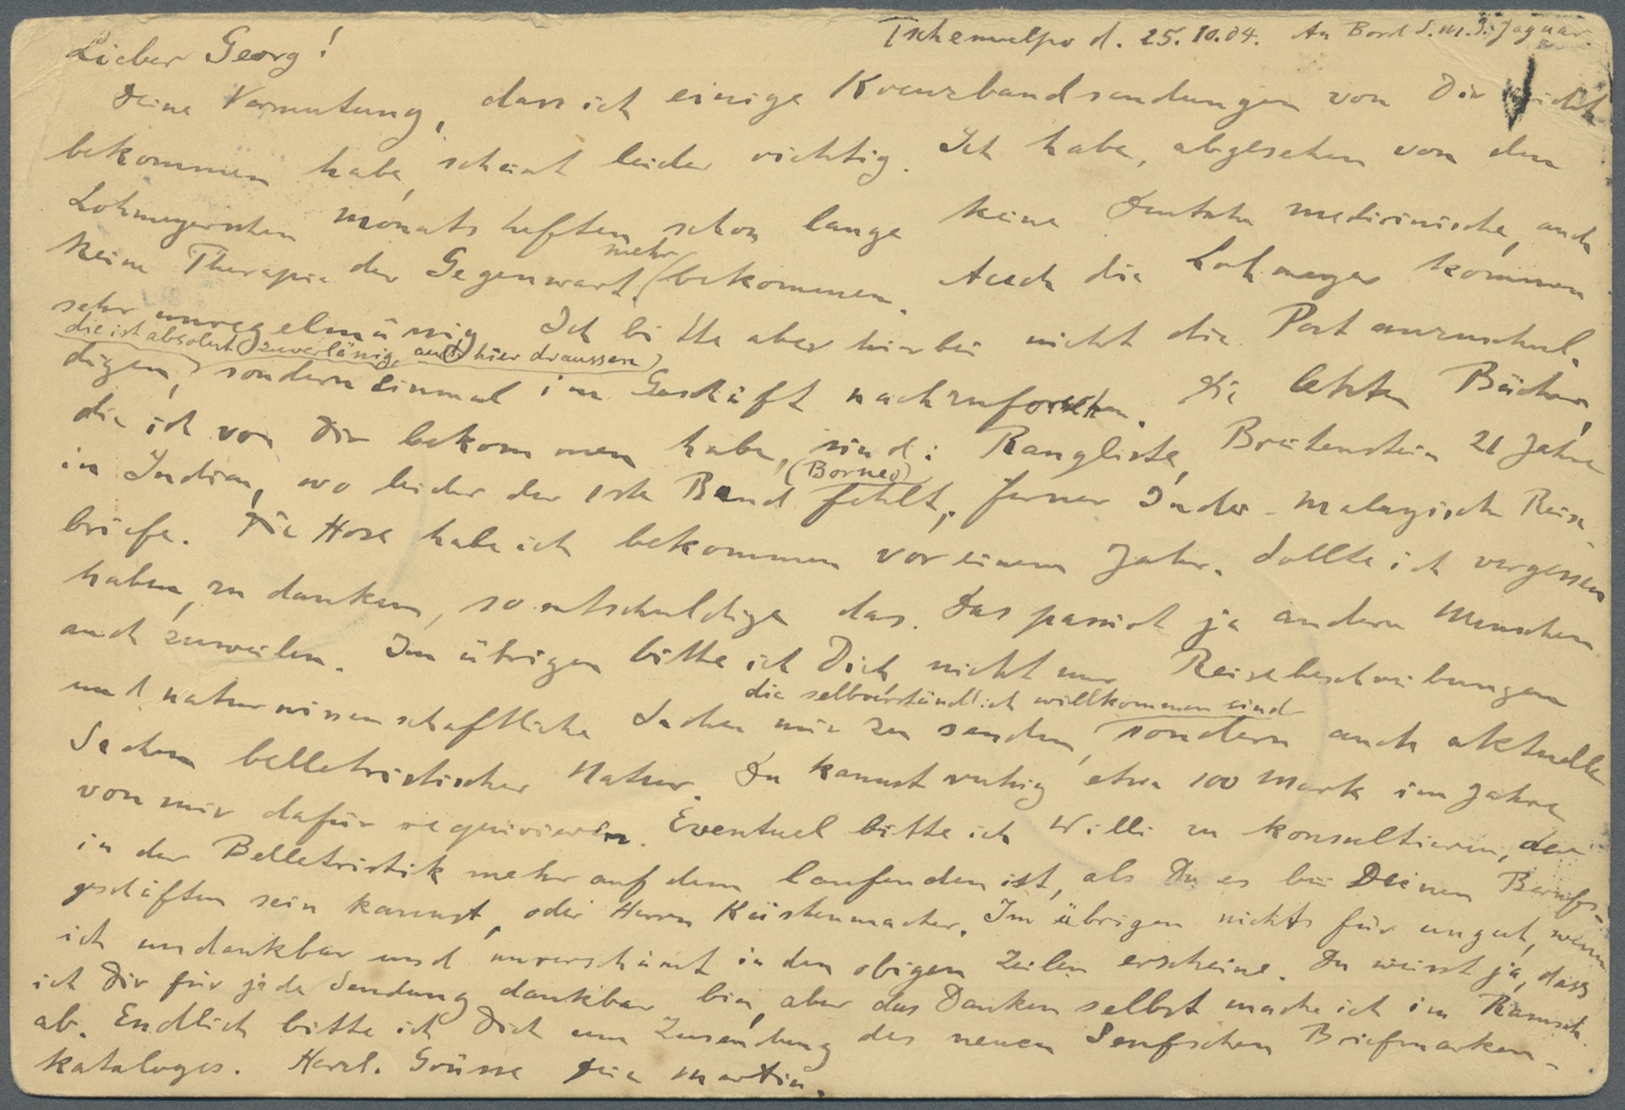 Tschemulpo d. 25.10.04. An Bord S.M.S. Jaguar.
Lieber Georg!
Deine Vermutung, dass ich einige Kreuzbandsendungen von Dir nicht
bekommen habe, scheint leider richtig. Ich habe, abgesehen von den
Lohmeyerschen Monatsheften schon lange keine Deutsche medicinische, auch
keine Therapie der Gegenwart mehr bekommen. Auch die Lohmeyer kommen
sehr unregelmässig. Ich bitte aber hierbei nicht die Post anzuschul-
die ist absolut zuverlässig, auch hier draussen
digen, sondern einmal im Geschäft nachzuforschen. Die letzten Bücher,
die ich von Dir bekommen habe, sind: Rangliste, Breitenstein 21 Jahre
in Indien, wo leider der 1ste Band (Borneo) fehlt, ferner Indo-malayische Reise-
briefe. Die Hose habe ich bekommen vor einem Jahr. Sollte ich vergessen
haben, zu danken, so entschuldige das. Das passirt ja andern Menschen
auch zuweilen. Im übrigen bitte ich Dich nicht nur Reisebeschreibungen
die selbverständlich willkommen sind
und naturwissenschaftliche Sachen mir zu senden, sondern auch aktuelle
Sachen belletristischer Natur. Du kannst ruhig etwa 100 Mark im Jahre
von mir dafür requirieren. Eventuel bitte ich Willi zu konsultieren, der
in der Belletristik mehr auf dem laufenden ist, als Du es bei Deinen Berufs-
geschäften sein kannst, oder Herrn Küstenmacher. Im übrigen nichts für ungut, wenn
ich undankbar und unverschämt in den obigen Zeilen erscheine. Du weisst ja, dass
ich Dir für jede Sendung dankbar bin, aber das Danken selbst mache ich im Ramsch
ab. Endlich bitte ich Dich um Zusendung des neuen Senfschen Briefmarken-
kataloges. Herzl. Grüsse Dein Martin.